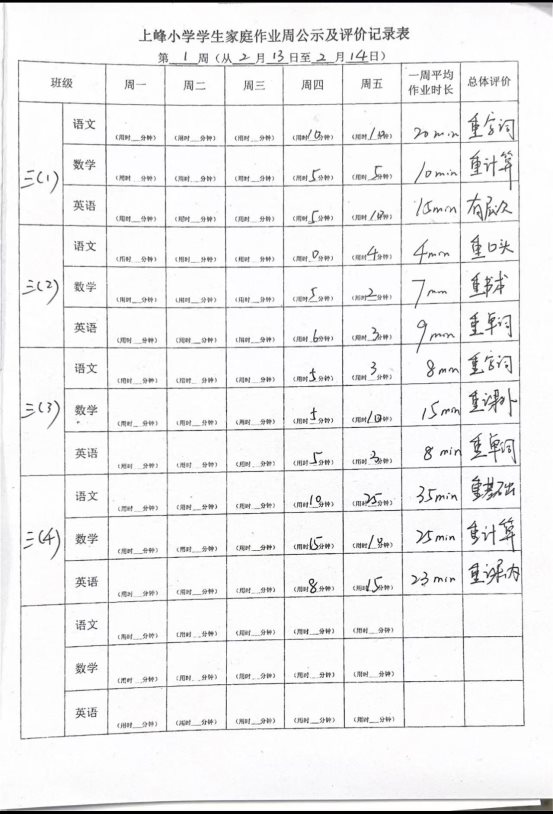 上峰小学学生家庭作业周公示及评价记录表
第 1 周（从 2 月 13 日至 2 月 14 日）
班级 周一 周二 周三 周四 周五 一周平均作业时长 总体评价
三(1) 语文 （用时__分钟） （用时__分钟） （用时__分钟） （用时10分钟） （用时10分钟） 20min 重字词
数学 （用时__分钟） （用时__分钟） （用时__分钟） （用时5分钟） （用时5分钟） 10min 重计算
英语 （用时__分钟） （用时__分钟） （用时__分钟） （用时5分钟） （用时10分钟） 15min 有层次
三(2) 语文 （用时__分钟） （用时__分钟） （用时__分钟） （用时0分钟） （用时4分钟） 4min 重口头
数学 （用时__分钟） （用时__分钟） （用时__分钟） （用时5分钟） （用时2分钟） 7min 重书本
英语 （用时__分钟） （用时__分钟） （用时__分钟） （用时6分钟） （用时3分钟） 9min 重单词
三(3) 语文 （用时__分钟） （用时__分钟） （用时__分钟） （用时5分钟） （用时3分钟） 8min 重字词
数学 （用时__分钟） （用时__分钟） （用时__分钟） （用时5分钟） （用时10分钟） 15min 重课外
英语 （用时__分钟） （用时__分钟） （用时__分钟） （用时5分钟） （用时3分钟） 8min 重单词
三(4) 语文 （用时__分钟） （用时__分钟） （用时__分钟） （用时10分钟） （用时25分钟） 35min 重基础
数学 （用时__分钟） （用时__分钟） （用时__分钟） （用时15分钟） （用时10分钟） 25min 重计算
英语 （用时__分钟） （用时__分钟） （用时__分钟） （用时8分钟） （用时15分钟） 23min 重课内
语文 （用时__分钟） （用时__分钟） （用时__分钟） （用时__分钟） （用时__分钟）
数学 （用时__分钟） （用时__分钟） （用时__分钟） （用时__分钟） （用时__分钟）
英语 （用时__分钟） （用时__分钟） （用时__分钟） （用时__分钟） （用时__分钟）